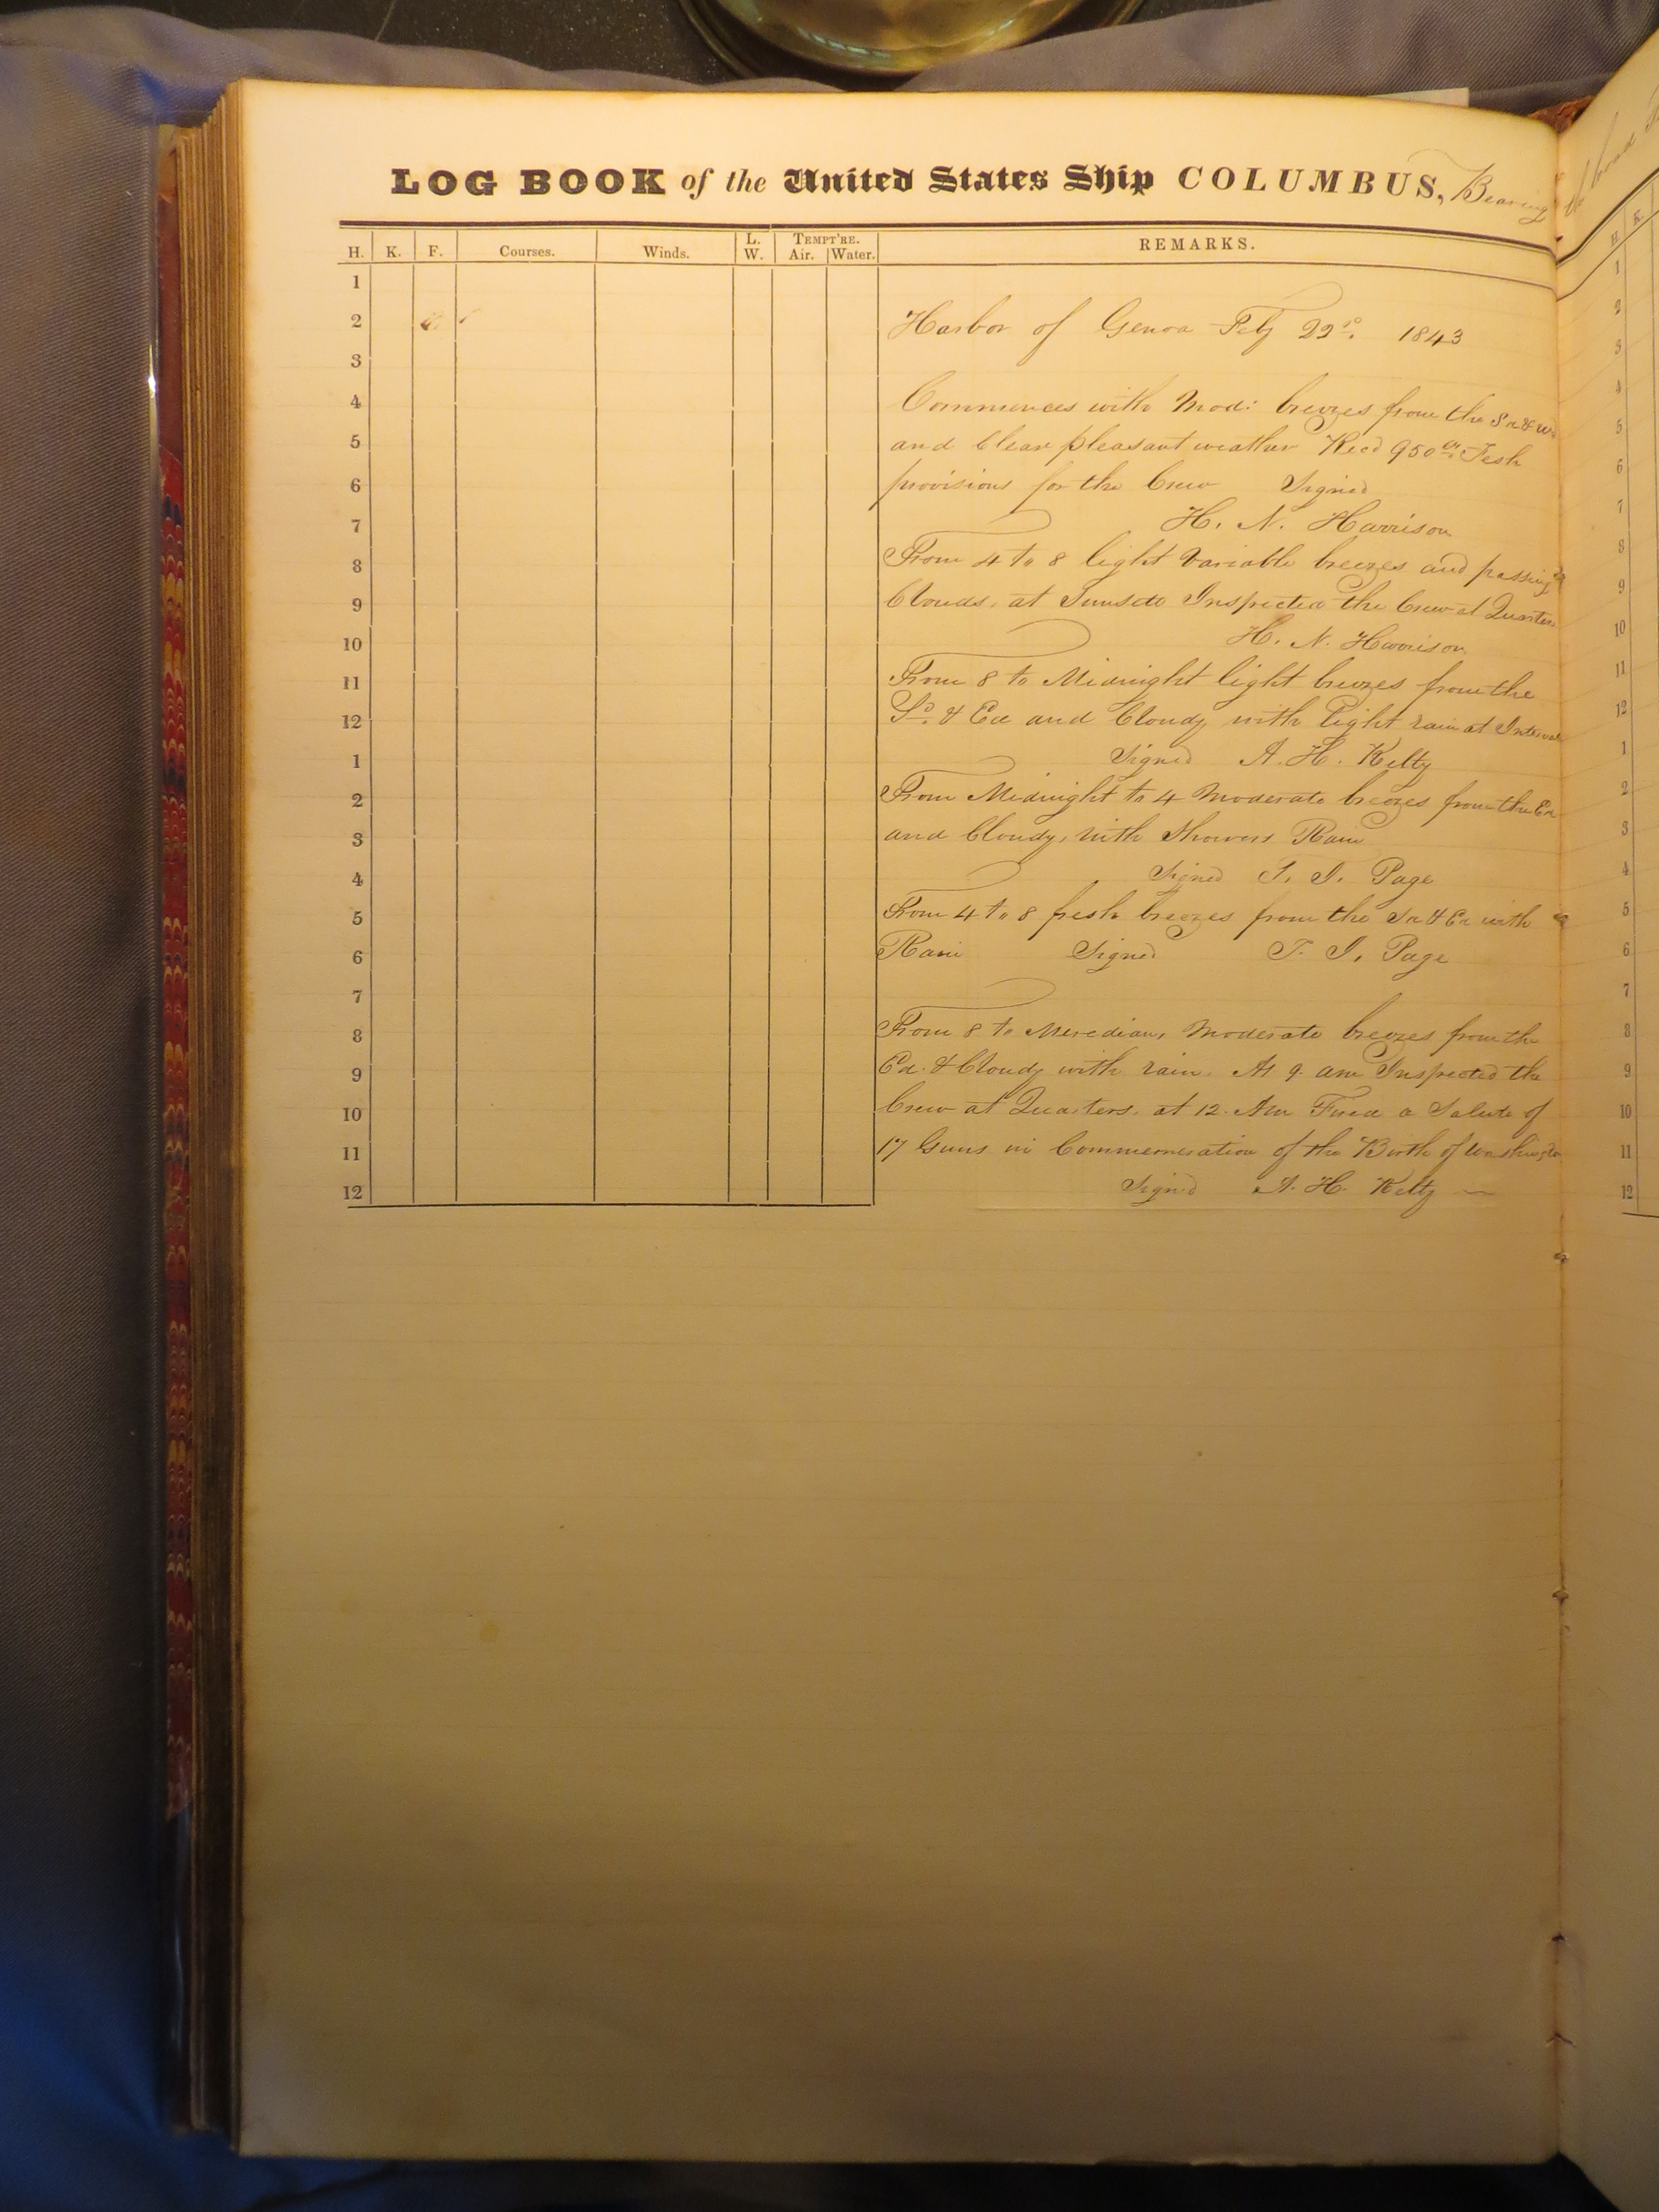 LOG BOOK of the United States Ship COLUMBUS, Bearing
H. K. F. Courses. Winds. L. W. TEMPT'RE. Air. Water. REMARKS.
1
2
3
4
5
6
7
8
9
10
11
12
1
2
3
4
5
6
7
8
9
10
11
12
Harbor of Genoa Feby 22d. 1843
Commences with Mod: breezes from the Sd & Wd
and Clear pleasant weather Recd 950 Fesh
provisions for the Crew Signed
H. N. Harrison
From 4 to 8 light variable breezes and passing
Clouds. at Sunset Inspected the Crew at Quarters
H. N. Harrison
From 8 to Midnight light breezes from the
Sd. & Ed and Cloudy with light rain at Intervals
Signed A. H. Kelty
From Midnight to 4 Moderate breezes from the Ed
and Cloudy, with Showers Rain
Signed T. J. Page
From 4 to 8 fresh breezes from the Sd & Ed with
Rain Signed T. J. Page
From 8 to Meredian, Moderate breezes from the
Ed. & Cloudy with rain. At 9 am Inspected the
Crew at Quarters. at 12. Am Fired a Salute of
17 Guns in Commemoration of the Birth of Washington
Signed A. H. Kelty
H. K.
1
2
3
4
5
6
7
8
9
10
11
12
1
2
3
4
5
6
7
8
9
10
11
12